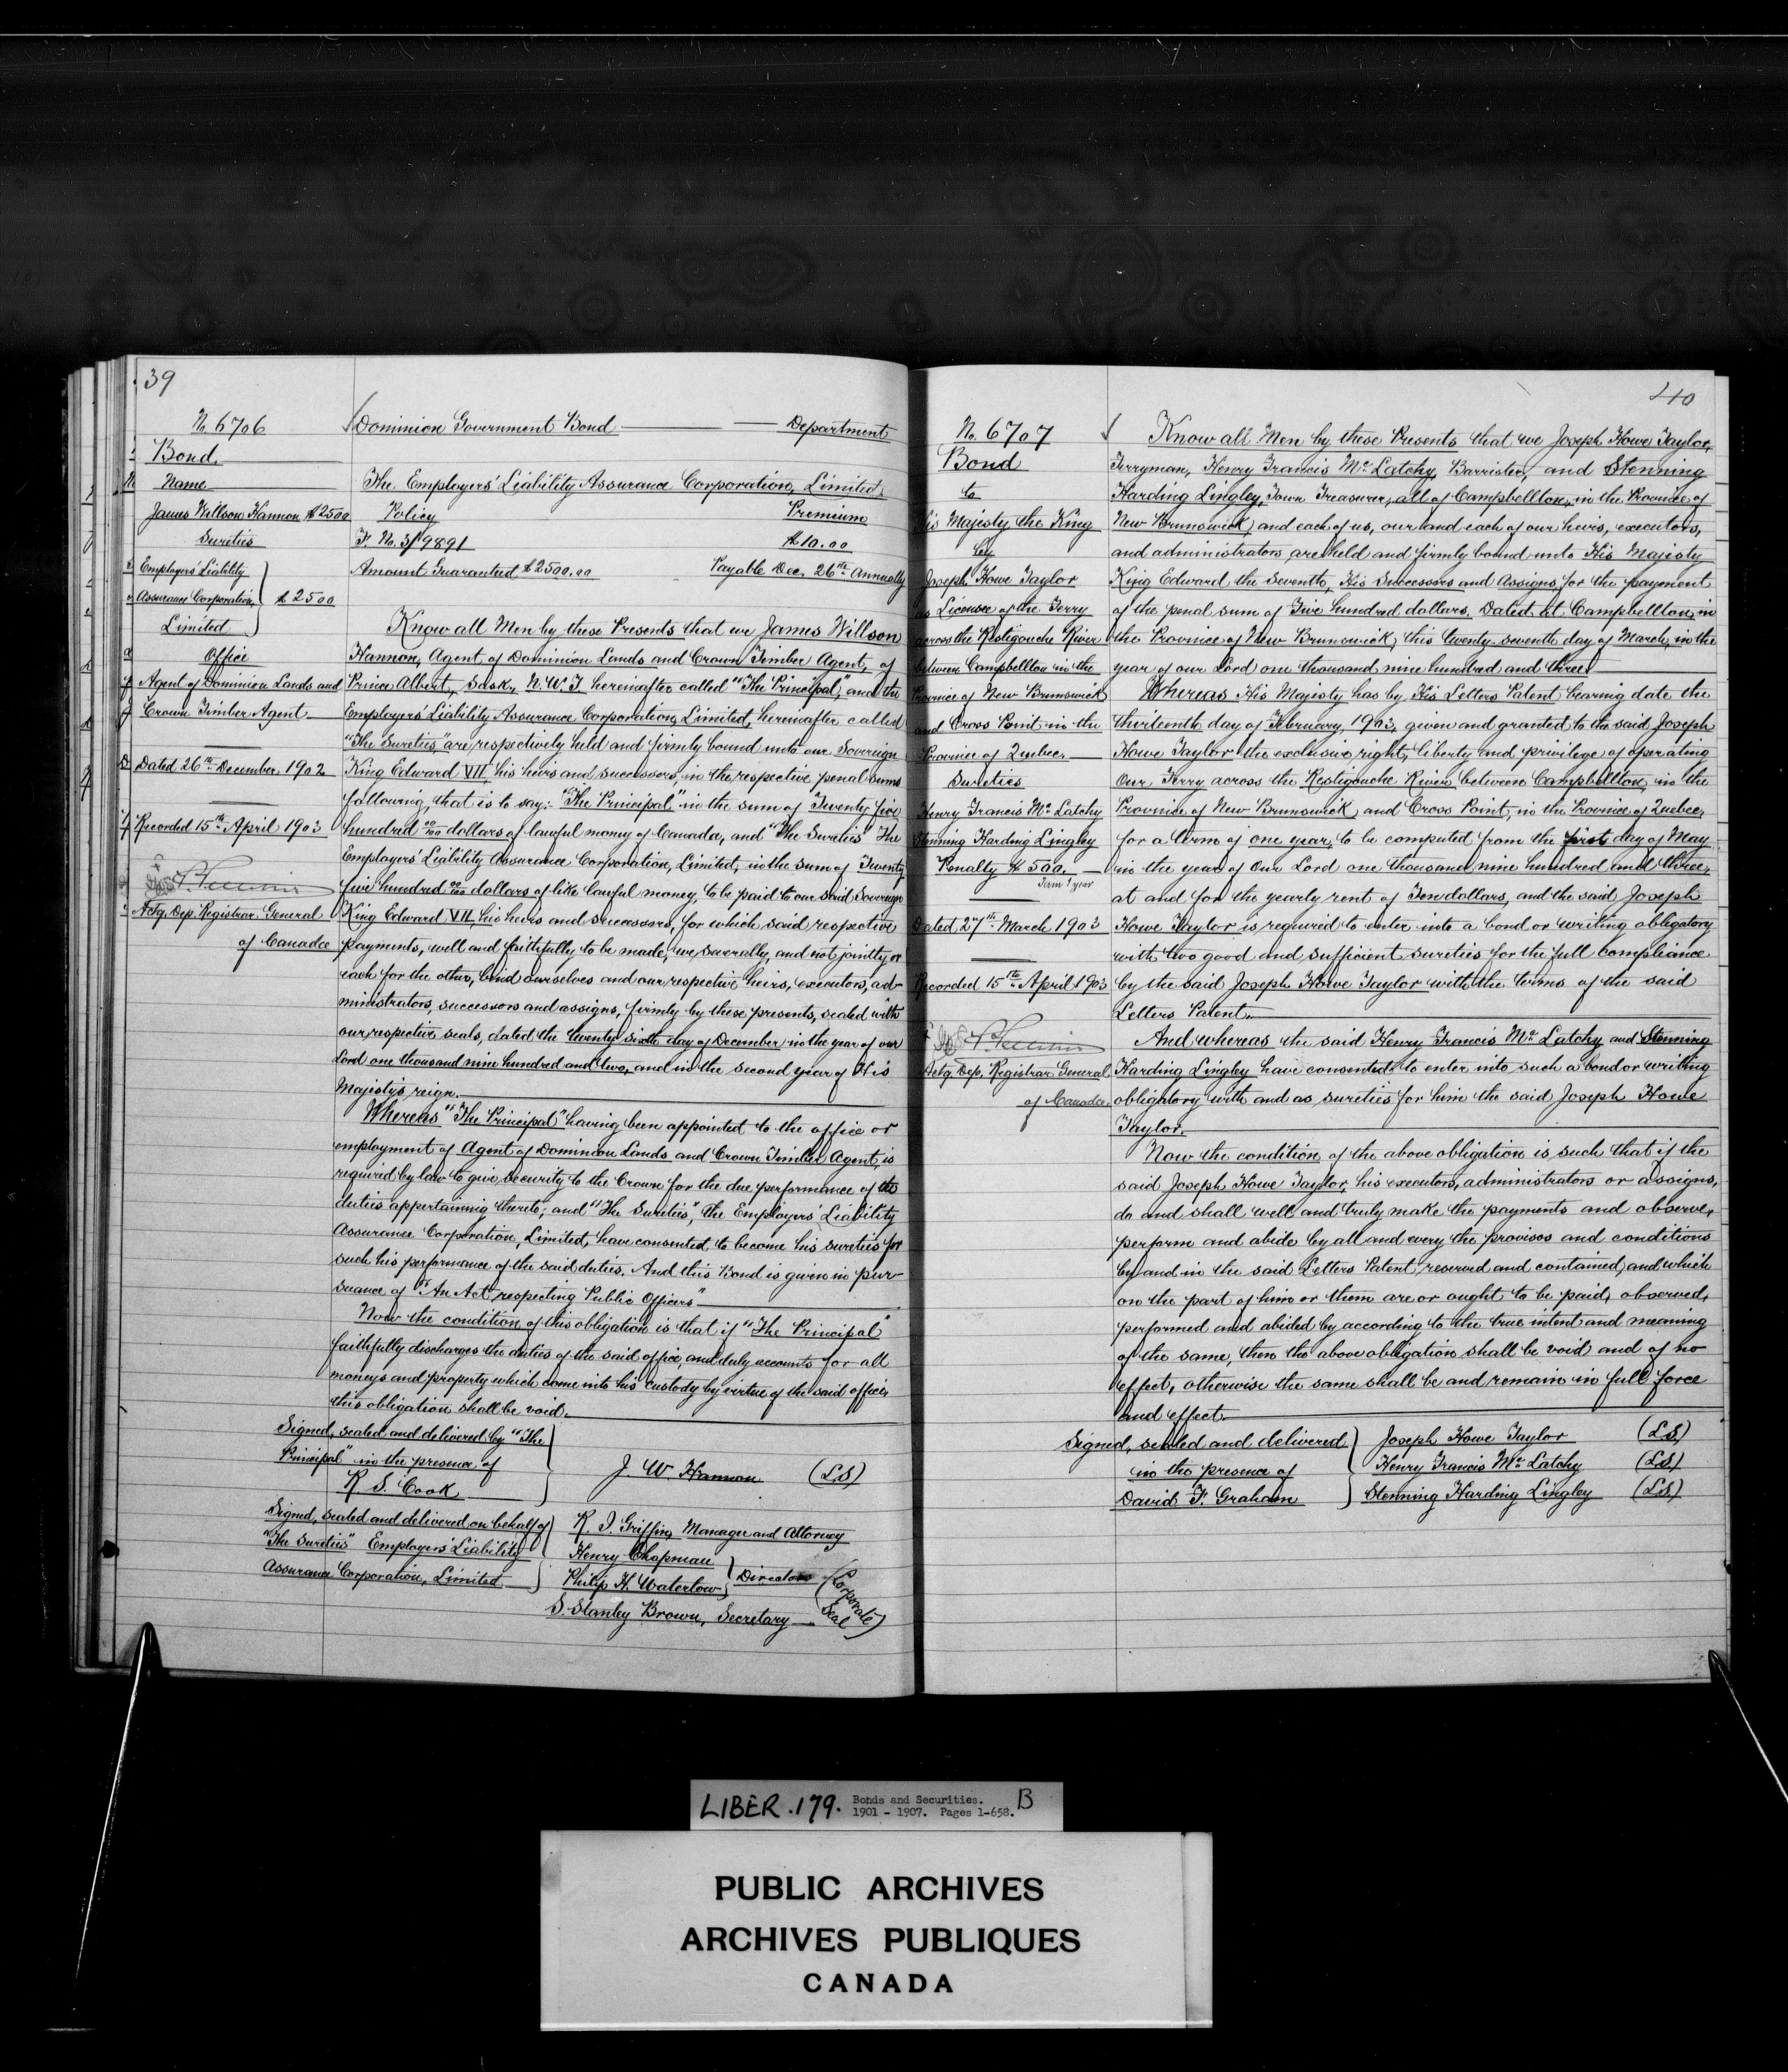 39
No 6706
Bond.
Name
James Willson Hannon $2500
Sureties
Employers' Liability
Assurance Corporation, $2500
Limited
Office
Agent of Dominion Lands and
Crown Timber Agent
Dated 26th December 1902
Recorded 15th April 1903
Actg. Dep. Registrar General
of Canada
Dominion Government Bond — Department
The Employers' Liability Assurance Corporation, Limited.
Policy Premium
F. No. 3/9891 $10.00
Amount Guaranteed $2500.00 Payable Dec. 26th Annually
Know all Men by these Presents that we James Willson
Hannon, Agent of Dominion Lands and Crown Timber Agent, of
Prince Albert, Sask., N.W.T. hereinafter called "The Principal", and the
Employers' Liability Assurance Corporation, Limited, hereinafter called
"The Sureties" are respectively held and firmly bound unto our Sovereign
King Edward VII, his heirs and successors, in the respective penal sums
following, that is to say:- "The Principal" in the sum of Twenty five
hundred 00/100 dollars of lawful money of Canada, and "The Sureties" The
Employers' Liability Assurance Corporation, Limited, in the sum of Twenty
five hundred 00/100 dollars of like lawful money, to be paid to our said Sovereign
King Edward VII, his heirs and successors, for which said respective
payments, well and faithfully to be made, we severally, and not jointly or
each for the other, bind ourselves and our respective heirs, executors, ad-
ministrators, successors and assigns, firmly by these presents, sealed with
our respective seals, dated the twenty sixth day of December in the year of our
Lord one thousand nine hundred and two, and in the second year of His
Majesty's reign.
Whereas "The Principal" having been appointed to the office or
employment of Agent of Dominion Lands and Crown Timber Agent, is
required by law to give security to the Crown for the due performance of the
duties appertaining thereto; and "The Sureties", the Employers' Liability
Assurance Corporation, Limited, have consented to become his sureties for
such his performance of the said duties. And this Bond is given in pur-
suance of "An Act respecting Public Officers"
Now the condition of this obligation is that if "The Principal"
faithfully discharges the duties of the said office, and duly accounts for all
moneys and property which come into his custody by virtue of the said office,
this obligation shall be void.
Signed, sealed and delivered by "The
Principal" in the presence of
R S. Cook
J. W. Hannon (LS)
Signed, sealed and delivered on behalf of
"The Sureties" Employers' Liability
Assurance Corporation, Limited
R. J. Griffin, Manager and Attorney
Henry Chapman
Philip H. Waterlow
Directors
S. Stanley Brown, Secretary
(Corporate Seal)
40
No. 6707
Bond
to
His Majesty the King
by
Joseph Howe Taylor
as Licensee of the Ferry
across the Restigouche River
between Campbellton in the
Province of New Brunswick
and Cross Point in the
Province of Quebec.
Sureties
Henry Francis Mc Latchy
Stenning Harding Lingley
Penalty $500.
Term 1 year
Dated, 27th March 1903
Recorded 15th April 1903
Actg. Dep. Registrar General
of Canada.
Know all Men by these Presents that we Joseph Howe Taylor,
Ferryman, Henry Francis Mc Latchy, Barrister, and Stenning
Harding Lingley, Town Treasurer, all of Campbellton, in the Province of
New Brunswick, and each of us, our and each of our heirs, executors,
and administrators, are held and firmly bound unto His Majesty
King Edward the Seventh, His Successors and Assigns, for the payment
of the penal sum of Five hundred dollars. Dated at Campbellton, in
the Province of New Brunswick, this twenty-seventh day of March, in the
year of our Lord one thousand nine hundred and three.
Whereas His Majesty has by His Letters Patent bearing date the
thirteenth day of February, 1903, given and granted to the said Joseph
Howe Taylor the exclusive right, liberty and privilege of operating
Our Ferry across the Restigouche River between Campbellton, in the
Province of New Brunswick and Cross Point, in the Province of Quebec,
for a term of one year, to be computed from the first day of May
in the year of Our Lord one thousand nine hundred and three,
at and for the yearly rent of Ten dollars, and the said Joseph
Howe Taylor is required to enter into a bond or writing obligatory
with two good and sufficient sureties for the full compliance
by the said Joseph Howe Taylor with the terms of the said
Letters Patent.
And whereas the said Henry Francis Mc Latchy and Stenning
Harding Lingley have consented to enter into such a bond or writing
obligatory with and as sureties for him the said Joseph Howe
Taylor.
Now the condition of the above obligation is such that if the
said Joseph Howe Taylor, his executors, administrators or assigns,
do and shall well and truly make the payments and observe,
perform and abide by all and every the provisos and conditions
by and in the said Letters Patent, reserved and contained, and which
on the part of him or them are or ought to be paid, observed,
performed and abided by according to the true intent and meaning
of the same, then the above obligation shall be void and of no
effect, otherwise the same shall be and remain in full force
and effect.
Signed, sealed and delivered
in the presence of
David F. Graham
Joseph Howe Taylor (LS)
Henry Francis Mc Latchy (LS)
Stenning Harding Lingley (LS)
LIBER.179. Bonds and Securities. B
1901 - 1907. Pages 1-658.
PUBLIC ARCHIVES
ARCHIVES PUBLIQUES
CANADA